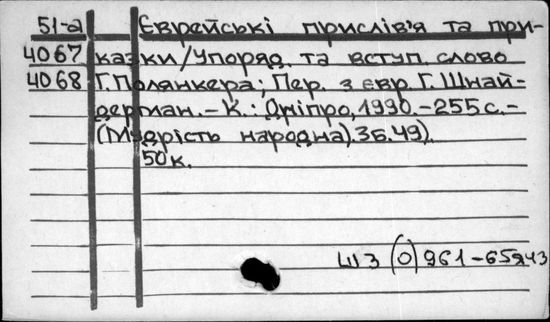 51-а Єврейські прислів'я та при-
4067 казки/Упоряд. та вступ. слово
4068 Г. Полянкера; Пер. з євр. Г. Шнай-
дерман. – К.: Дніпро, 1990. – 255 с. –
(Мудрість народна). Зб. 49).
50 к.
Ш3 (0) 961-659я43